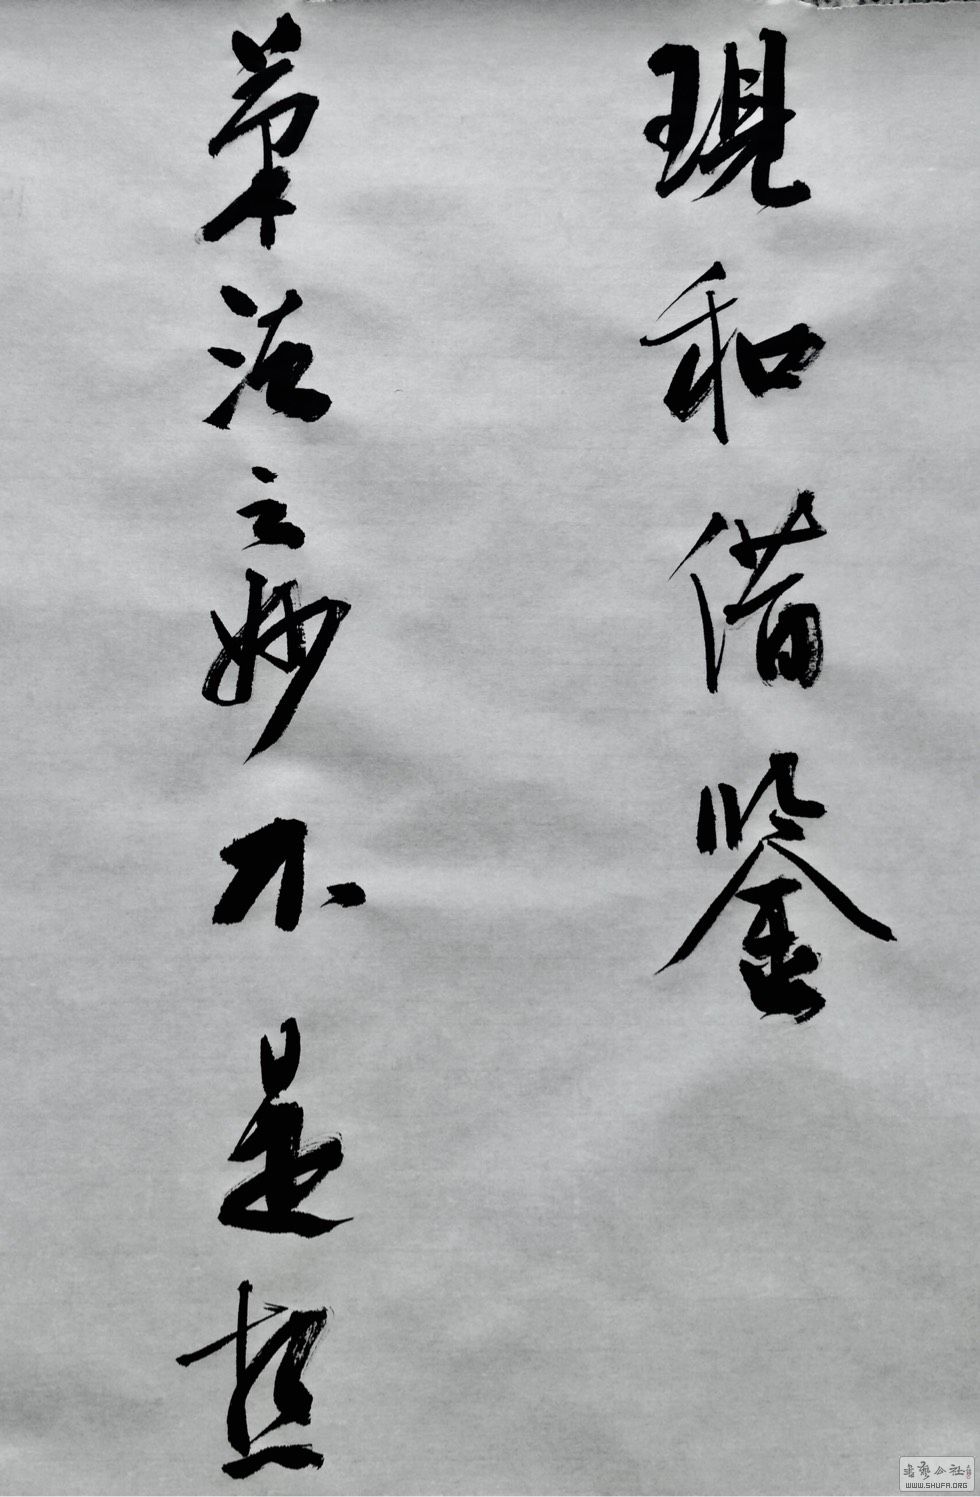 現和借鉴
筆法之妙不是
書藝公社
WWW.SHUFA.ORG